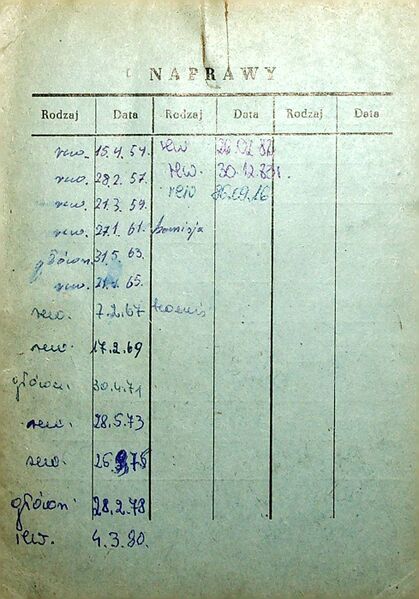 NAPRAWY
Rodzaj Data Rodzaj Data Rodzaj Data
rew. 15.4.54. rew 26.02.82
rew. 28.2.57. rew. 30.12.83r.
rew. 21.3.59. rew 26.09.86
rew. 27.1.61. komisja
główn. 31.5.63.
rew. 65.
rew. 7.2.67
rew. 17.2.69
główn. 30.4.71
rew. 28.5.73
rew. 26
główn. 28.2.78
rew. 4.3.80.